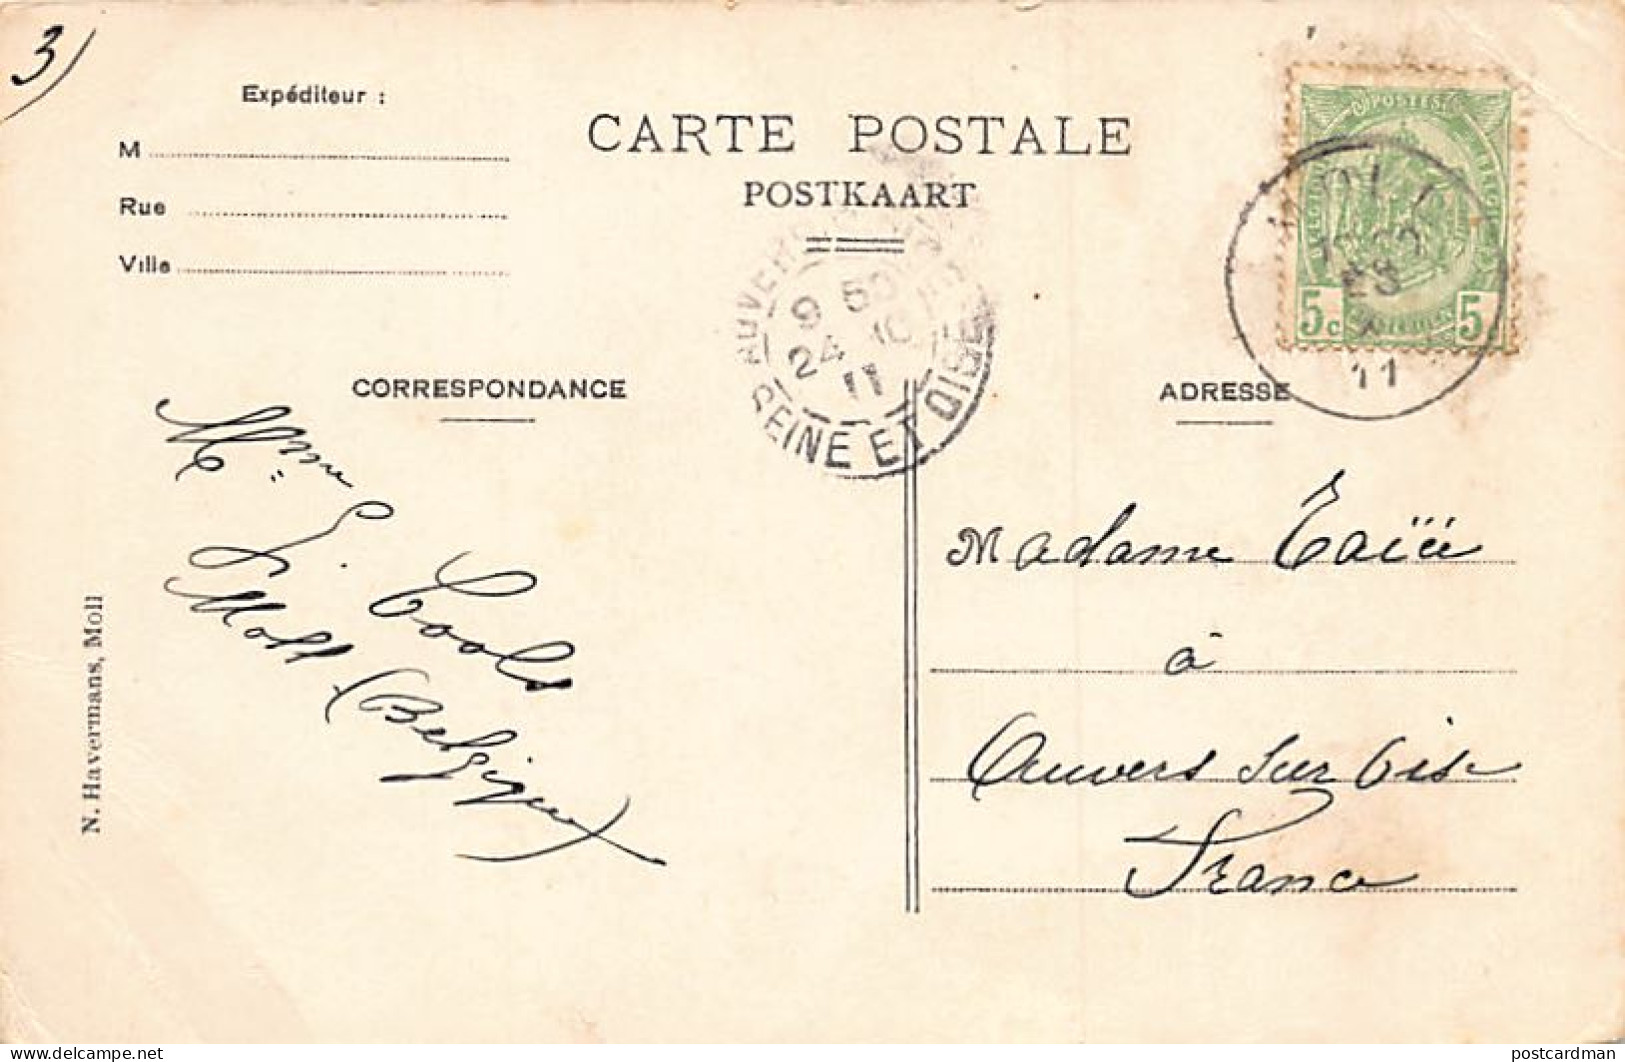 3)
Expéditeur :
M
Rue
Ville
CARTE POSTALE
POSTKAART
POSTES
5c
5
MOLL
11
AUVERS
9 50
24 10
11
SEINE ET OISE
CORRESPONDANCE
ADRESSE
Mme
Cools
Moll (Belgique)
Madame
à
Auvers Sur Oise
France
N. Havermans, Moll
delcampe.net
postcardman